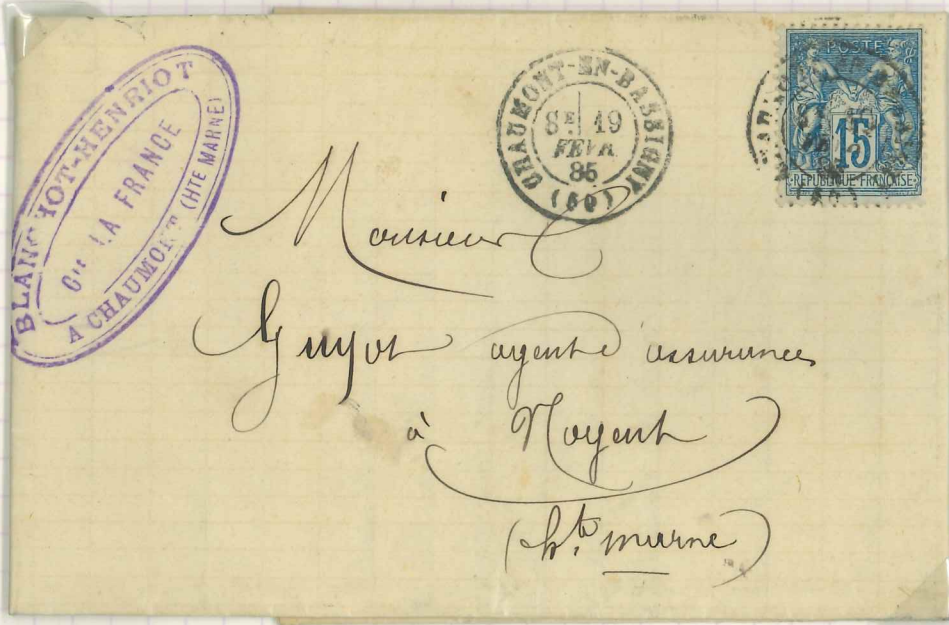 BLANCHOT-HENRIOT
Cie LA FRANCE
A CHAUMONT (HTE MARNE)
CHAUMONT-EN-BASSIGNY
8E 19
FEVR.
85
(50)
POSTE
15
REPUBLIQUE FRANCAISE
Monsieur
Guyot agent d'assurances
à Nogent
(hte marne)